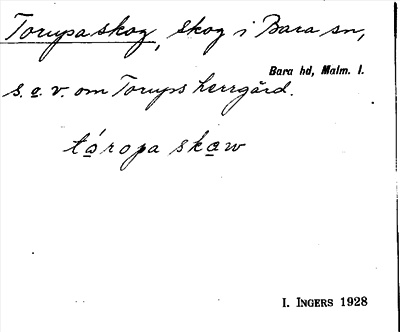 Torupaskog, skog i Bara sn,
Bara hd, Malm. l.
s. o. v. om Torups herrgård.
tóropa skɑw
I. INGERS 1928